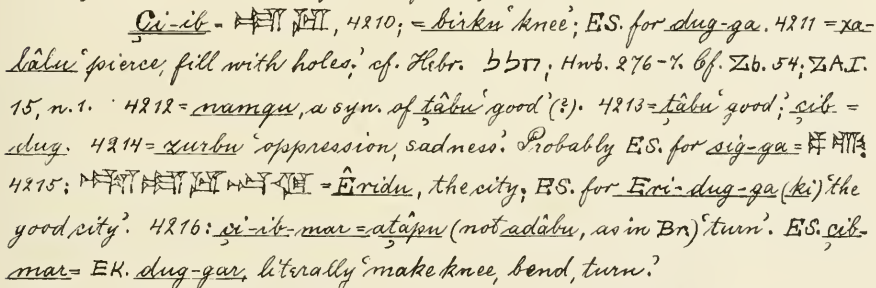 Çi-ib = 𒍢𒅁, 4210; = birku ‘knee’; ES. for dug-ga. 4211 = xa-
lâlu ‘pierce, fill with holes;’ cf. Hebr. חלל; Hwb. 276-7. Cf. Zb. 54; ZA. I.
15, n. 1. 4212 = namqu, a syn. of ṭâbu ‘good’(?). 4213 = ṭâbu ‘good’; çib =
dug. 4214 = zurbu ‘oppression, sadness’. Probably ES. for sig-ga =
4215: = Êridu, the city; ES. for Eri-dug-ga(ki) ‘the
good city’. 4216: çi-ib-mar = atâpu (not adâbu, as in Br.) ‘turn’. ES. çib-
mar = EK. dug-gar, literally ‘make knee, bend, turn?’